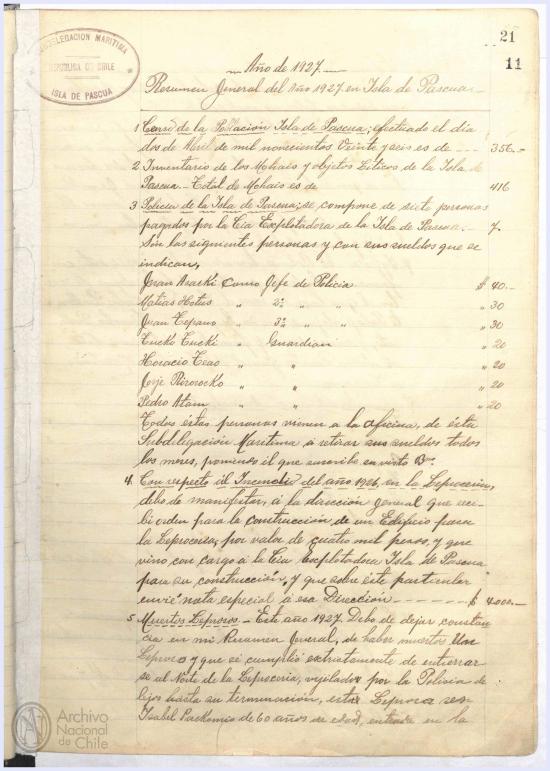 SUBDELEGACION MARITIMA
REPUBLICA DE CHILE
ISLA DE PASCUA
21
11
Año de 1927.
Resumen General del Año 1927 en Isla de Pascua
1 Censo de la Población Isla de Pascua; efectuado el dia
dos de Abril de mil novecientos Veinte y seis es de --- 356.-
2 Inventario de los Mohais y objetos Liticos de la Isla de
Pascua.- Total de Mohais es de 416
3 Policia de la Isla de Pascua; se compone de siete personas
pagados por la Cia Explotadora de la Isla de Pascua. - 7.
Son las siguientes personas y con sus sueldos que se
indican,
Juan Araki Como Jefe de Policia $ 40.-
Matias Hotus " 2º " " " 30
Juan Tepano " 3º " " " 30
Tucko Tucki " Guardian " 20
Horacio Teao " " " 20
Jorje Riroroco " " " 20
Pedro Atam " " " 20
Todos éstas personas vienen a la oficina, de ésta
Subdelegación Maritima a retirar sus sueldos todos
los meses, poniendo él que suscribe su visto Bº.
4. Con respecto al Incendio del año 1926, en la Leproceria,
debo de manifestar, á la dirección general que reci-
bi orden para la construcción de un Edificio para
la Leproceria, por valor de cuatro mil pesos, y que
vino con cargo á la Cia Explotadora Isla de Pascua
para su construcción, y que sobre éste particular
envié nota especial á esa Dirección ------ $ 4.000.-
5. Muertos Leprosos - Este año 1927. Debo de dejar constan
cia en mi Resumen General, de haber muertos Un
Leproso y que se cumplió extrictamente de enterrar
se al Norte de la Leproceria, vigilados por la Policia de
lejos hasta su terminación, esta Leprosa
Isabel de 60 años de edad, en la
Archivo
Nacional
de Chile